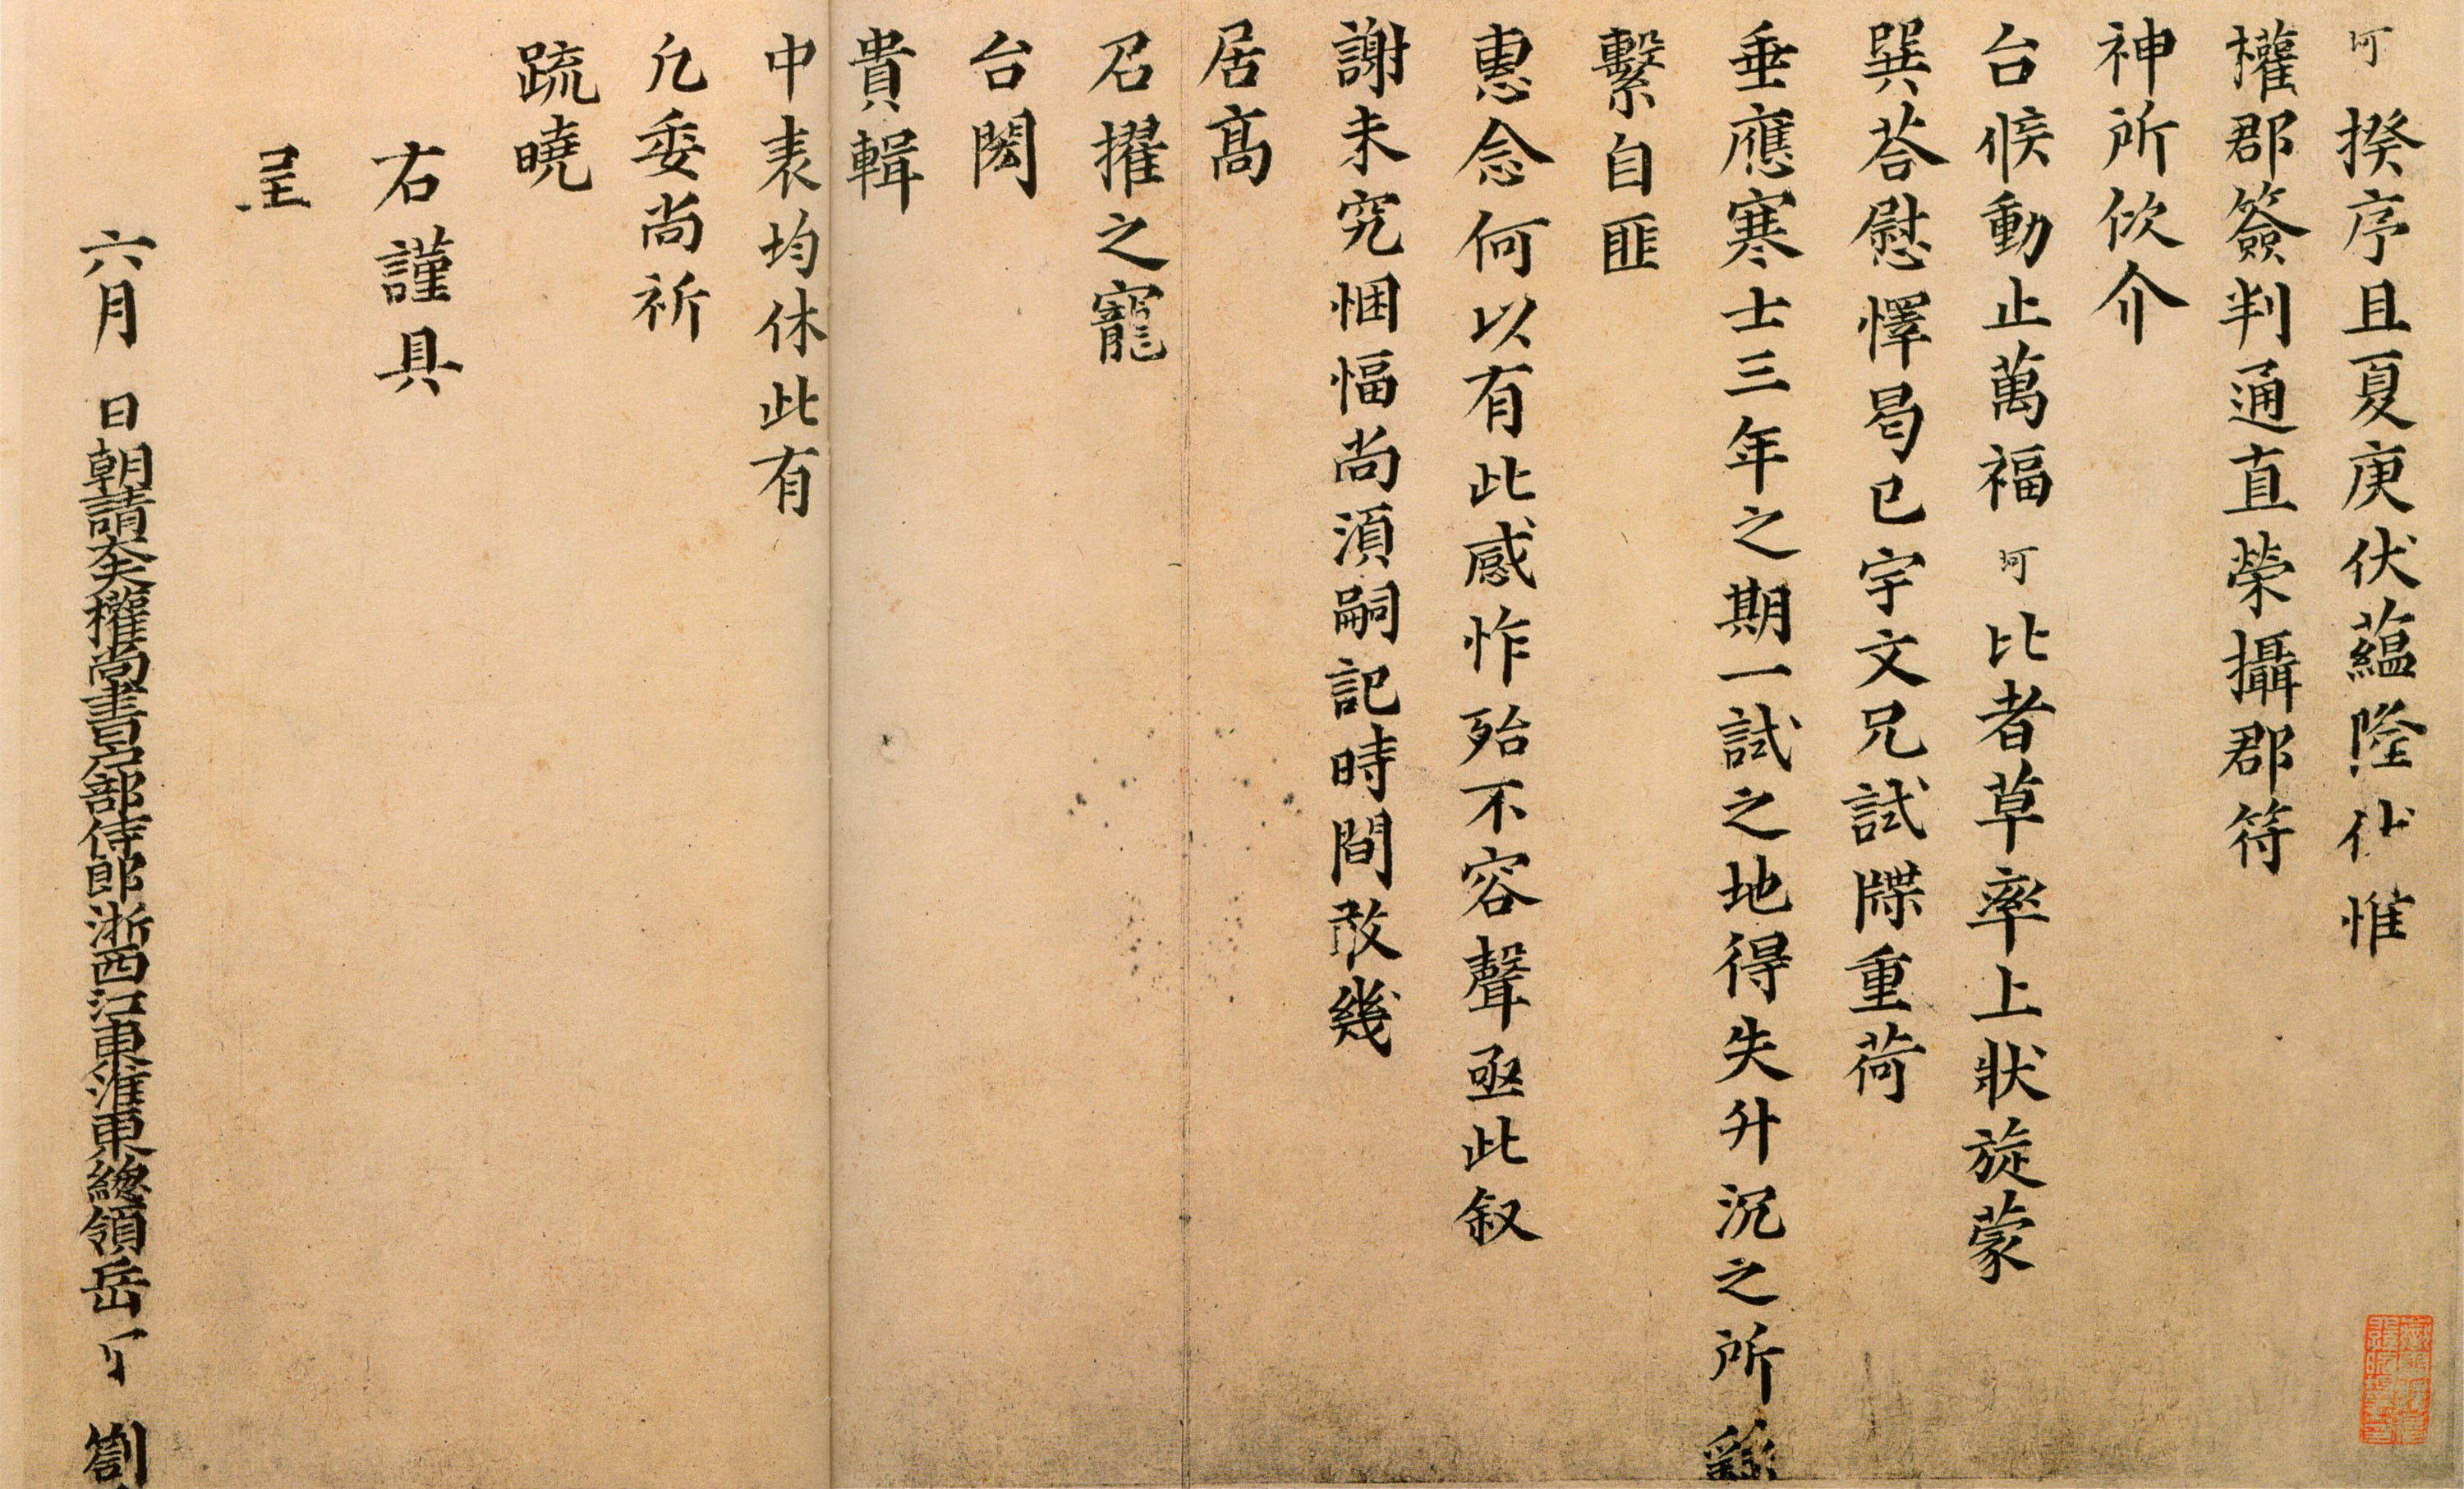 珂揆序且夏庚伏蘊隆伏惟
權郡簽判通直榮攝郡符
神所佽介
台候動止萬福珂比者草率上狀旋蒙
巽荅慰懌曷已宇文兄試牒重荷
垂應寒士三年之期一試之地得失升沉之所繇
繫自匪
惠念何以有此感怍殆不容聲亟此叙
謝未究悃愊尚須嗣記時間敢幾
居髙
召擢之寵
台閎
貴輯
中表均休此有
凢委尚祈
䟽曉
右謹具
呈
六月 日朝請大夫權尚書户部侍郎浙西江東淮東總領岳 劄